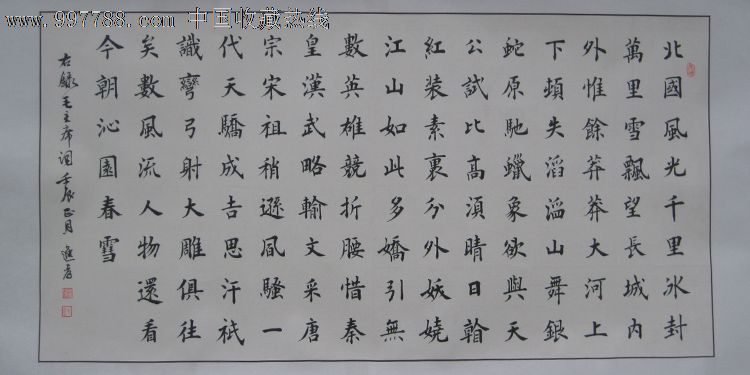 www.997788.com 中国收藏热线
北國風光千里冰封
萬里雪飄望長城内
外惟餘莽莽大河上
下頓失滔滔山舞銀
蛇原馳蠟象欲與天
公試比高須晴日
紅装素裹分外妖嬈
江山如此多嬌引無
數英雄競折腰惜秦
皇漢武略輸文采唐
宗宋祖稍遜風騷一
代天驕成吉思汗祇
識彎弓射大雕俱往
矣數風流人物還看
今朝沁園春雪
右録毛主席词壬辰正月